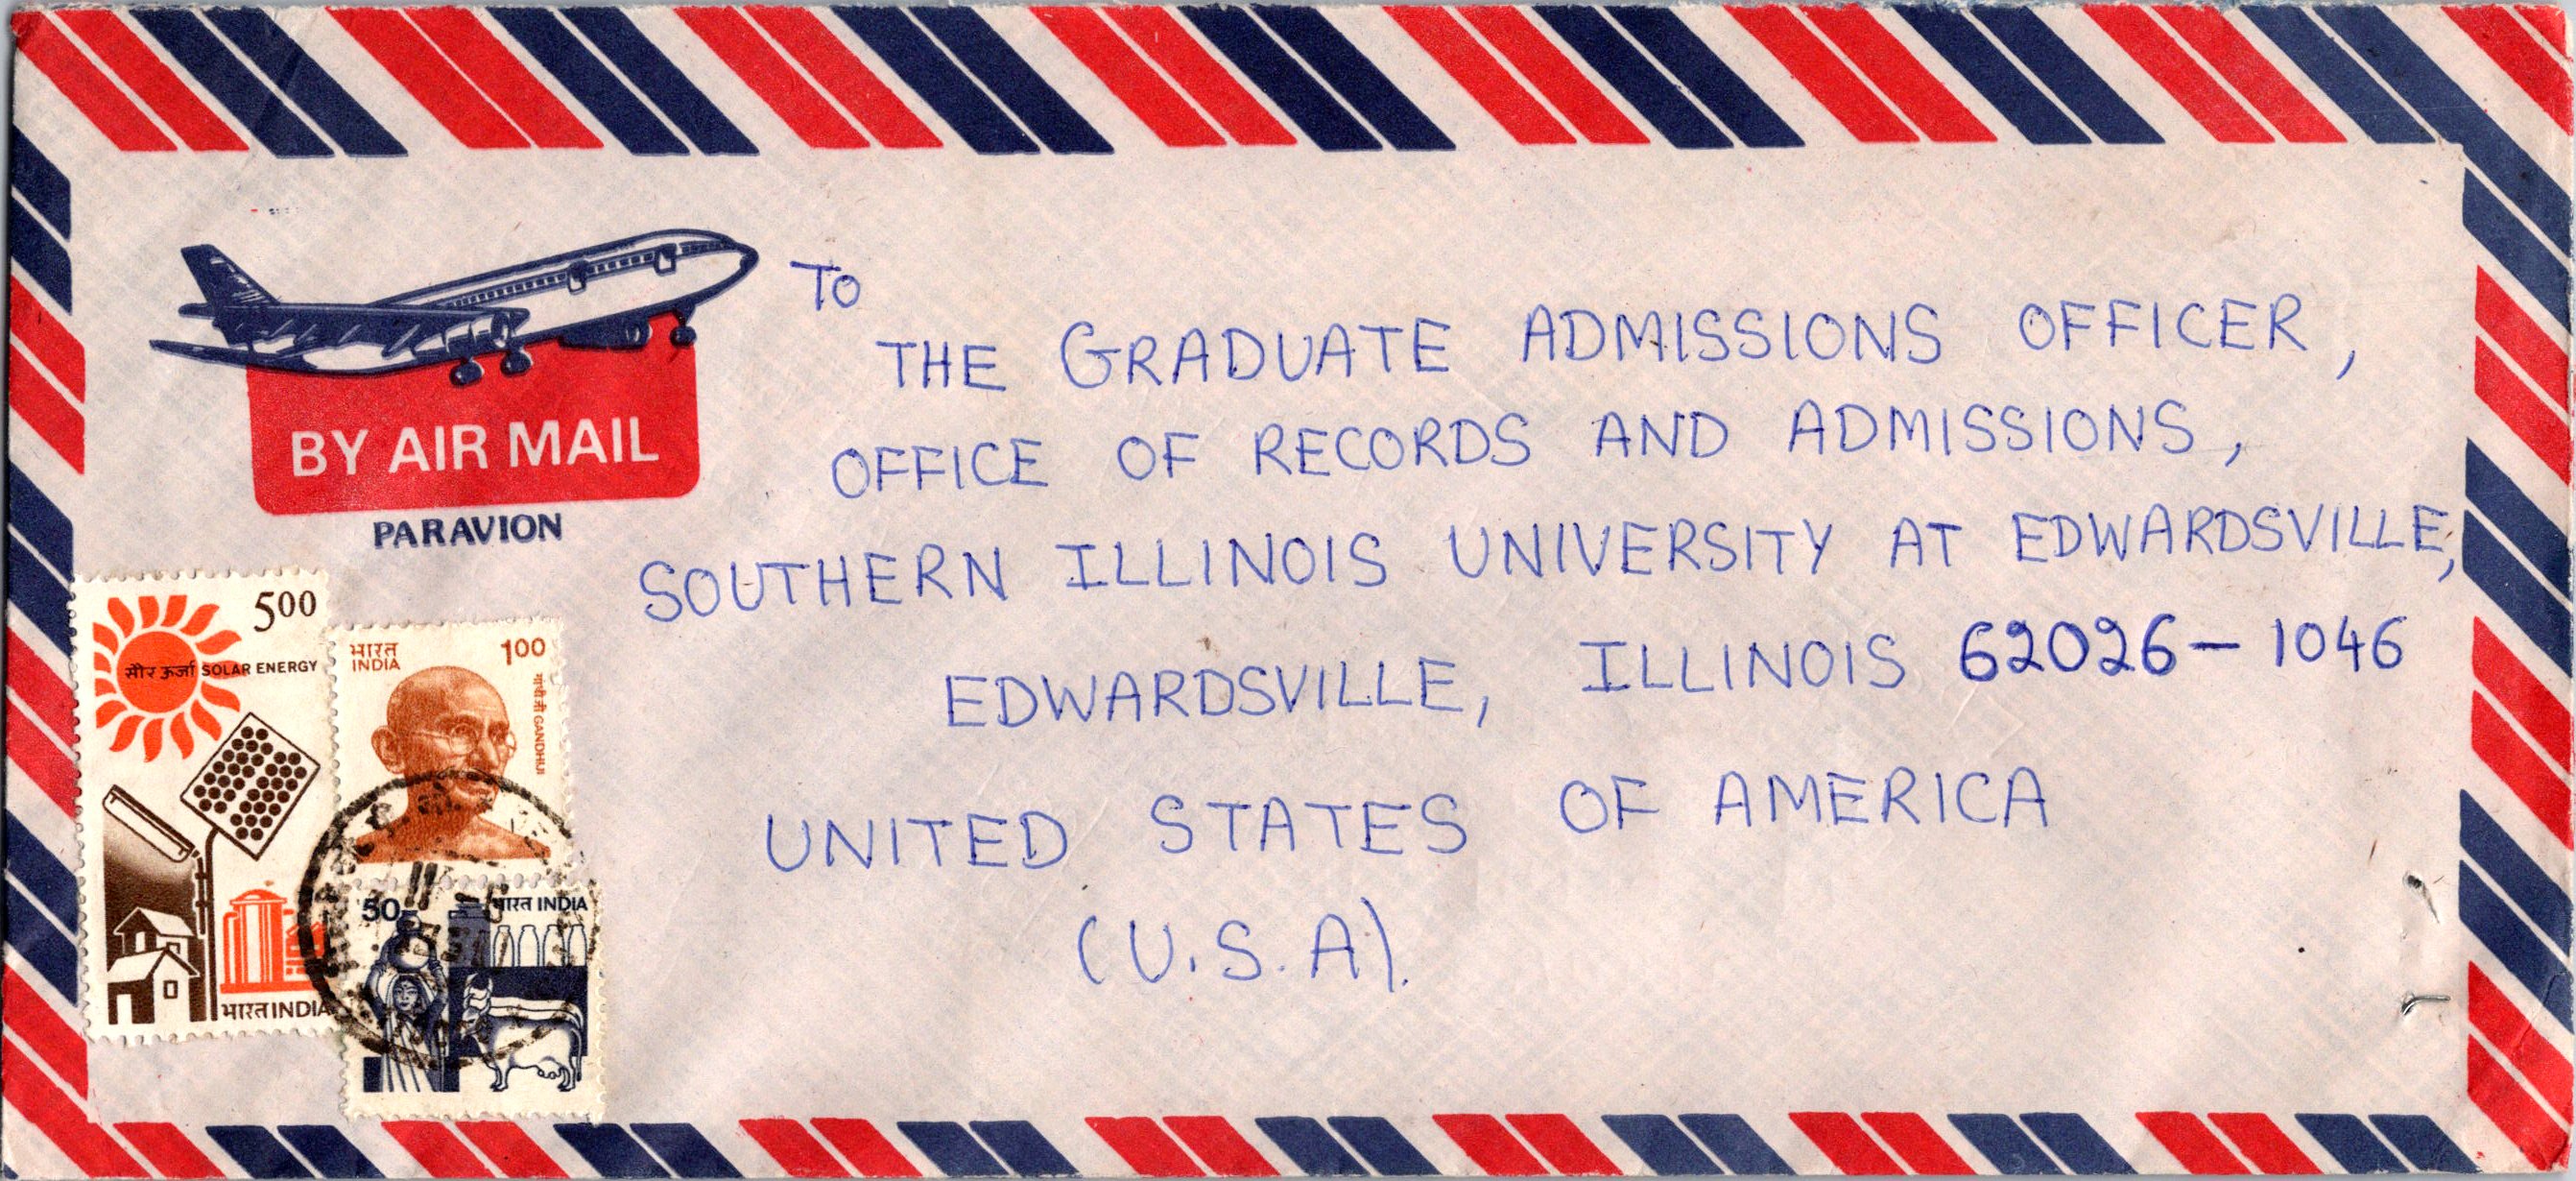 BY AIR MAIL
PARAVION
To
THE GRADUATE ADMISSIONS OFFICER,
OFFICE OF RECORDS AND ADMISSIONS,
SOUTHERN ILLINOIS UNIVERSITY AT EDWARDSVILLE,
EDWARDSVILLE, ILLINOIS 62026-1046
UNITED STATES OF AMERICA
(U.S.A).
500
सौर ऊर्जा SOLAR ENERGY
भारत INDIA
भारत
INDIA
100
गांधी जी GANDHIJI
50
भारत INDIA